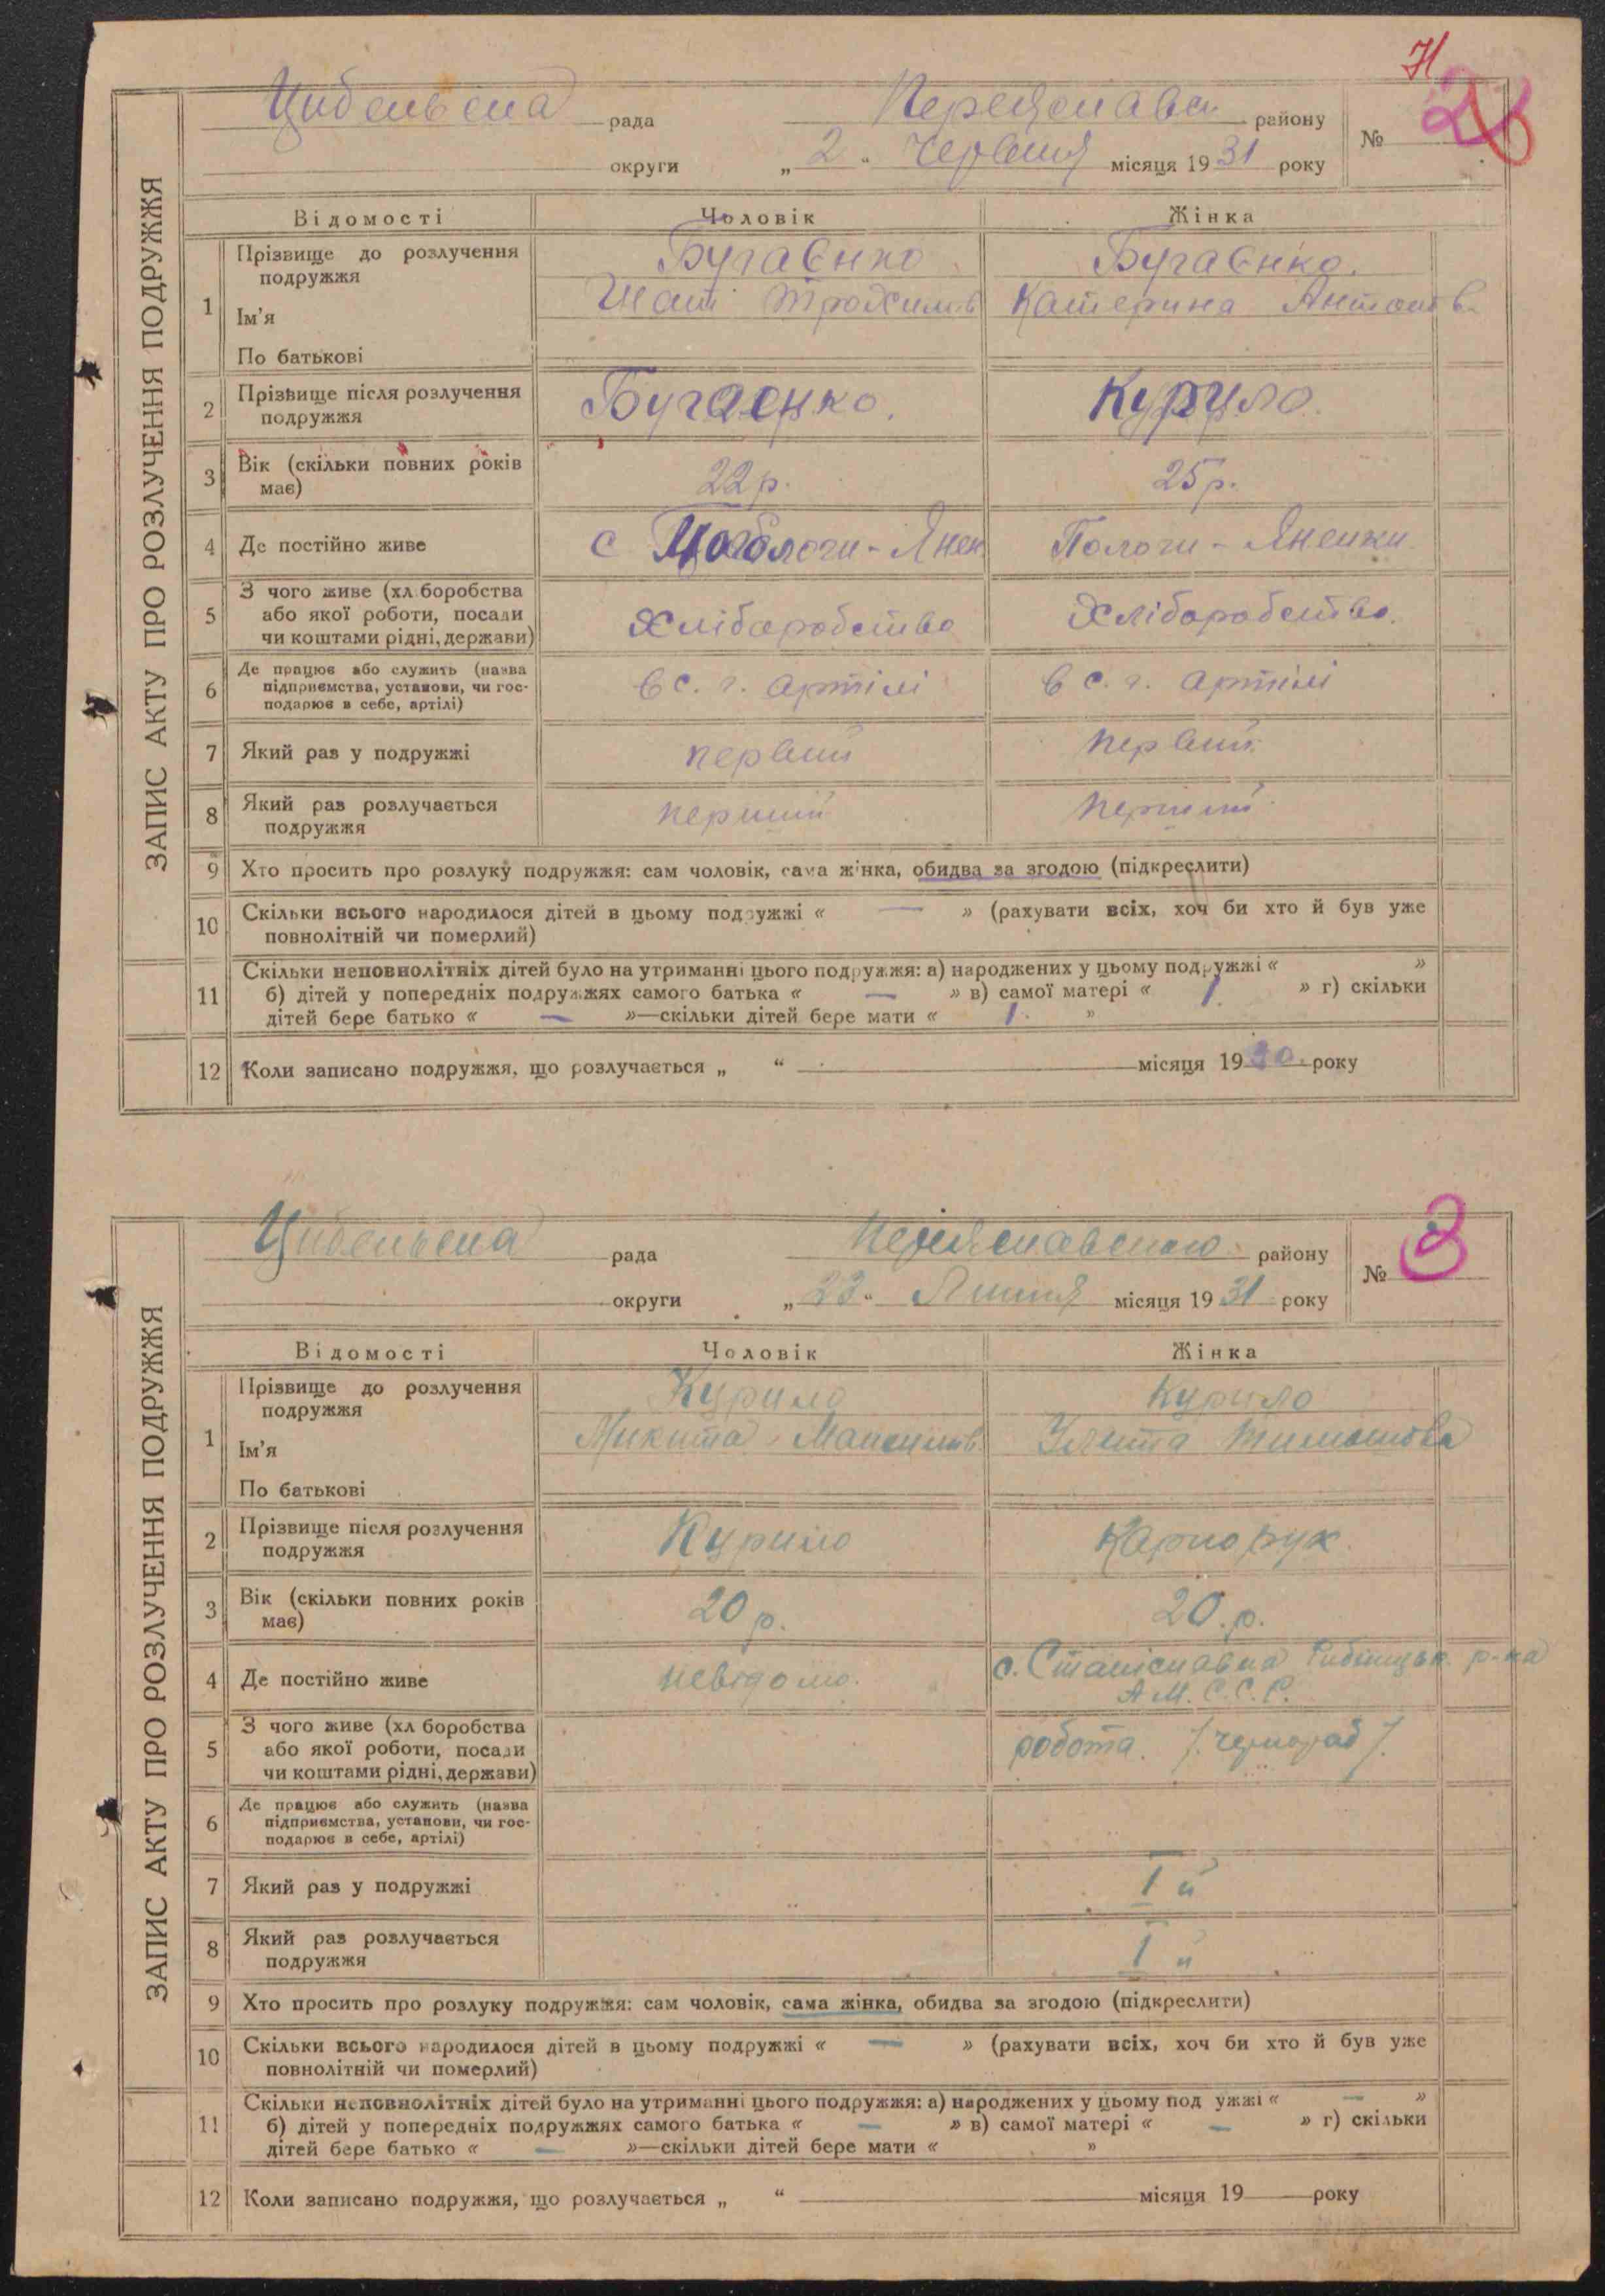 ЗАПИС АКТУ ПРО РОЗЛУЧЕННЯ ПОДРУЖЖЯ
Цибельська рада Переяславськ району № 2
округи „ 2 “ Червня місяця 1931 року
Відомості Чоловік Жінка
1 Прізвище до розлучення подружжя Бугаєнко Бугаєнко.
Ім'я Трохимів Катерина Антонів
По батькові
2 Прізвище після розлучення подружжя Бугаєнко. Курило.
3 Вік (скільки повних років має) 22 р. 25 р.
4 Де постійно живе с Пологи-Яненки
5 З чого живе (хліборобства або якої роботи, посади чи коштами рідні, держави) Хліборобство Хлібаробство.
6 Де працює або служить (назва підприємства, установи, чи господарює в себе, артілі) в с. г. артілі в с. г. артілі
7 Який раз у подружжі первий первий
8 Який раз розлучається подружжя перший перший
9 Хто просить про розлуку подружжя: сам чоловік, сама жінка, обидва за згодою (підкреслити)
10 Скільки всього народилося дітей в цьому подружжі « — » (рахувати всіх, хоч би хто й був уже
повнолітній чи померлий)
11 Скільки неповнолітніх дітей було на утриманні цього подружжя: а) народжених у цьому подружжі « »
б) дітей у попередніх подружжях самого батька « — » в) самої матері « 1 » г) скільки
дітей бере батько « — »—скільки дітей бере мати « 1. »
12 Коли записано подружжя, що розлучається „ “ місяця 1930. року
ЗАПИС АКТУ ПРО РОЗЛУЧЕННЯ ПОДРУЖЖЯ
Цибельська рада Переяславського району № 3
округи „ 23 “ Липня місяця 1931 року
Відомості Чоловік Жінка
1 Прізвище до розлучення подружжя Курило Курило
Ім'я Микита Максимів Улита Тимошова
По батькові
2 Прізвище після розлучення подружжя Курило
3 Вік (скільки повних років має) 20 р. 20. р.
4 Де постійно живе невідомо. с. Станіславка Рибницьк. р-на
А М. С. С. Р.
5 З чого живе (хліборобства або якої роботи, посади чи коштами рідні, держави) робота. /чернораб/.
6 Де працює або служить (назва підприємства, установи, чи господарює в себе, артілі)
7 Який раз у подружжі I й
8 Який раз розлучається подружжя I й
9 Хто просить про розлуку подружжя: сам чоловік, сама жінка, обидва за згодою (підкреслити)
10 Скільки всього народилося дітей в цьому подружжі « — » (рахувати всіх, хоч би хто й був уже
повнолітній чи померлий)
11 Скільки неповнолітніх дітей було на утриманні цього подружжя: а) народжених у цьому подружжі « — »
б) дітей у попередніх подружжях самого батька « — » в) самої матері « — » г) скільки
дітей бере батько « — »—скільки дітей бере мати « »
12 Коли записано подружжя, що розлучається „ “ місяця 19 року